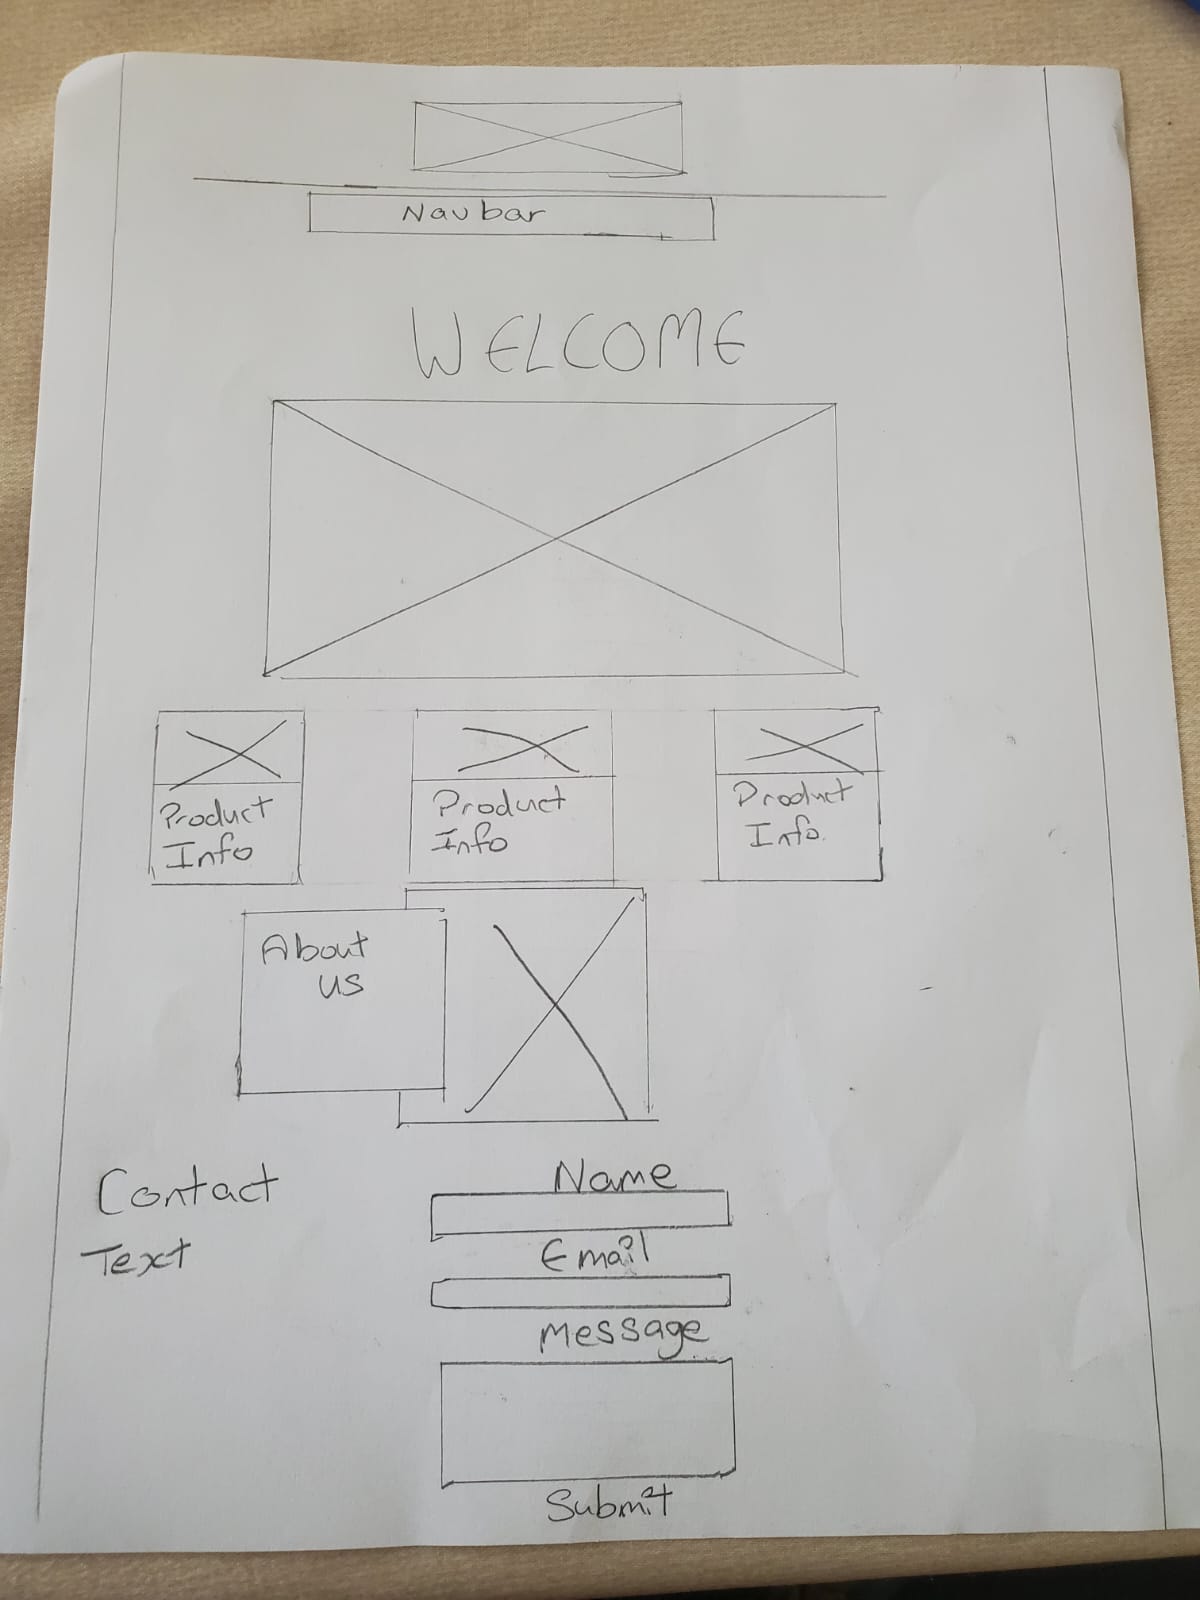 Navbar
WELCOME
Product
Info
Product
Info
Product
Info.
About
us
Contact
Text
Name
Email
Message
Submit